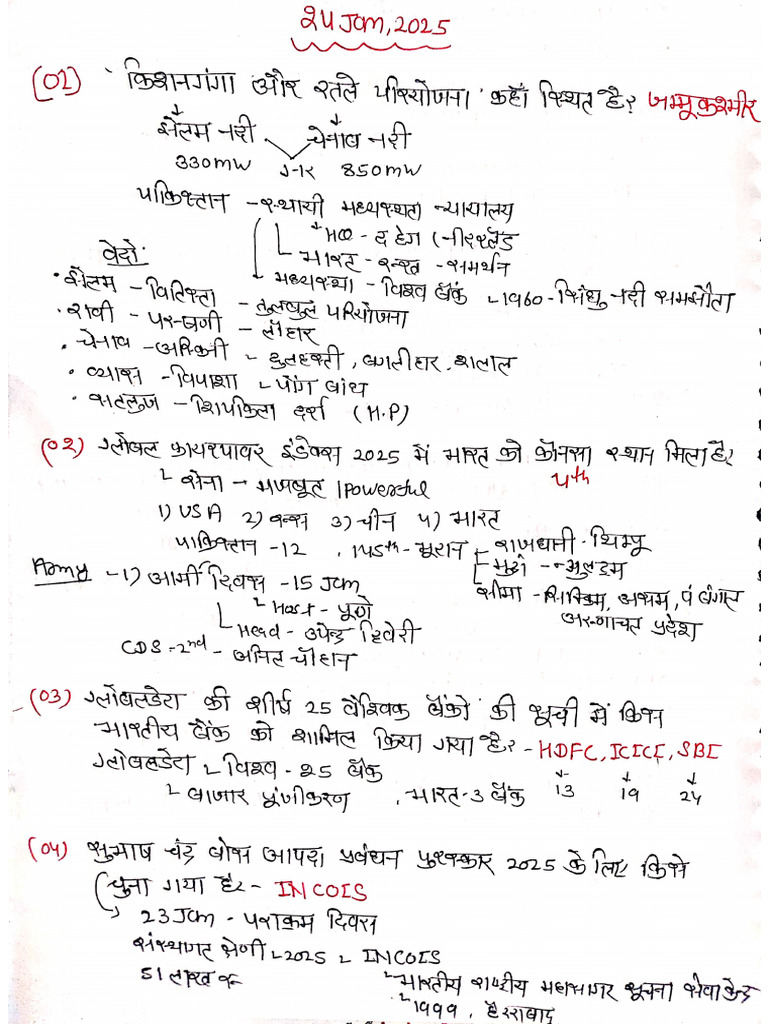 24 Jan, 2025
(01) किशनगंगा और रतले परियोजना कहाँ स्थित है? जम्मू कश्मीर
झेलम नदी चेनाब नदी
330MW J-K 850MW
पाकिस्तान - स्थायी मध्यस्थता न्यायालय
HQ - द हेग (नीदरलैंड
भारत - रुख - समर्थन
मध्यस्था - विश्व बैंक 1960 - सिंधु नदी समझौता
वेदों:
• झेलम - वितिस्ता - तुलबुल परियोजना
• रावी - परुष्णी - लाहौर
• चेनाब - अस्किनी - दुलहस्ती, बगलीहार, सलाल
• व्यास - विपाशा पोंग बांध
• सतलुज - शिपकिला दर्रा (H.P)
(02) ग्लोबल फायरपावर इंडेक्स 2025 में भारत को कौनसा स्थान मिला है?
4th
सेना - मजबूत / Powerful
1) USA 2) रूस 3) चीन 4) भारत
पाकिस्तान - 12, 145th - भूटान राजधानी - थिम्पू
मुद्रा - नगुलट्रम
सीमा - सिक्किम, असम, पं बंगाल
अरुणाचल प्रदेश
Army - 1) आर्मी दिवस - 15 Jan
Host - पूणे
Head - उपेन्द्र द्विवेदी
CDS - 2nd - अनिल चौहान
(03) ग्लोबलडेटा की शीर्ष 25 वैश्विक बैंकों की सूची में किस
भारतीय बैंक को शामिल किया गया है? - HDFC, ICICI, SBI
ग्लोबलडेटा विश्व - 25 बैंक
बाजार पूंजीकरण, भारत - 3 बैंक 13 19 24
(04) सुभाष चंद्र बोस आपदा प्रबंधन पुरस्कार 2025 के लिए किसे
चुना गया है? - INCOIS
23 Jan - पराक्रम दिवस
संस्थागत श्रेणी 2025 INCOIS
51 लाख रु
भारतीय राष्ट्रीय महासागर सूचना सेवा केंद्र
1999, हैदराबाद